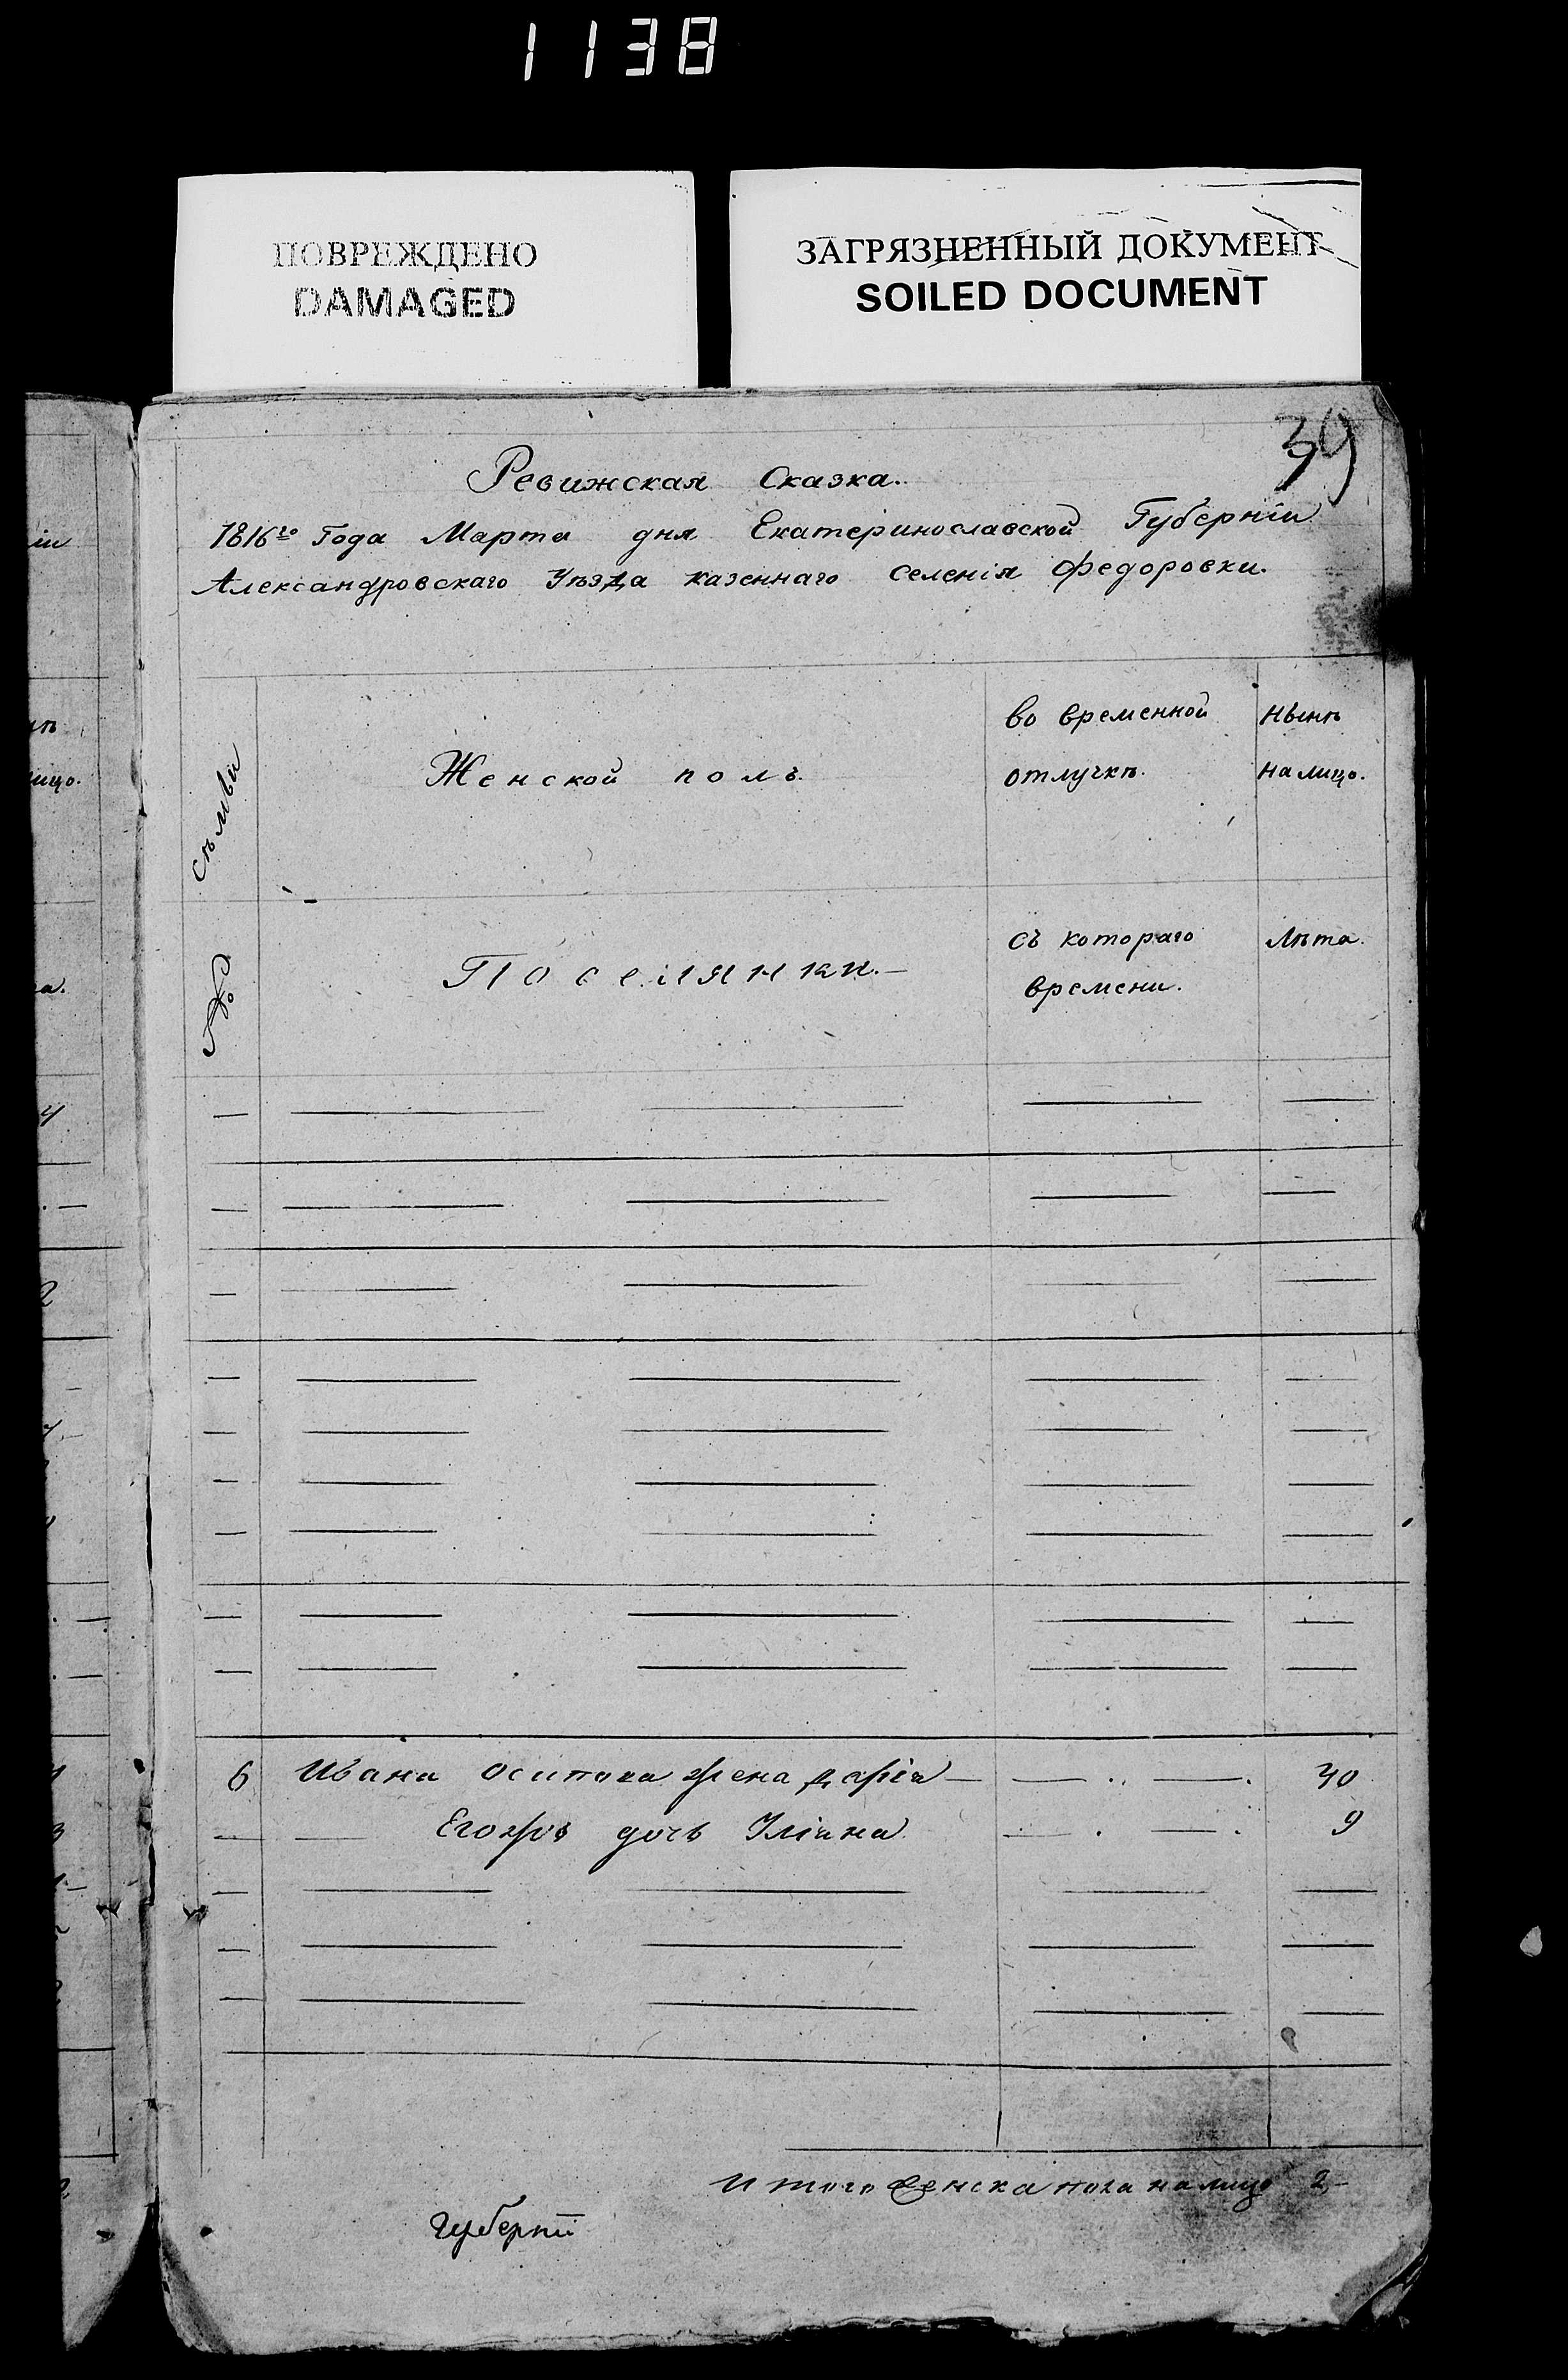 1138
ПОВРЕЖДЕНО
DAMAGED
ЗАГРЯЗНЕННЫЙ ДОКУМЕНТ
SOILED DOCUMENT
39
Ревижская Сказка.
1816го Года Марта дня Екатеринославской Губерніи
Александровскаго Уѣзда казеннаго селенія Федоровки.
№ сѣмьи
Женской полъ.
во временной
отлучкѣ.
Нынѣ
на лицо.
Поселянки.
съ котораго
времени.
Лѣта.
6 Ивана Осипова жена дарія 40
Егожъ дочь Уліана 9
Итого женска пола на лицо 2
Губерніи